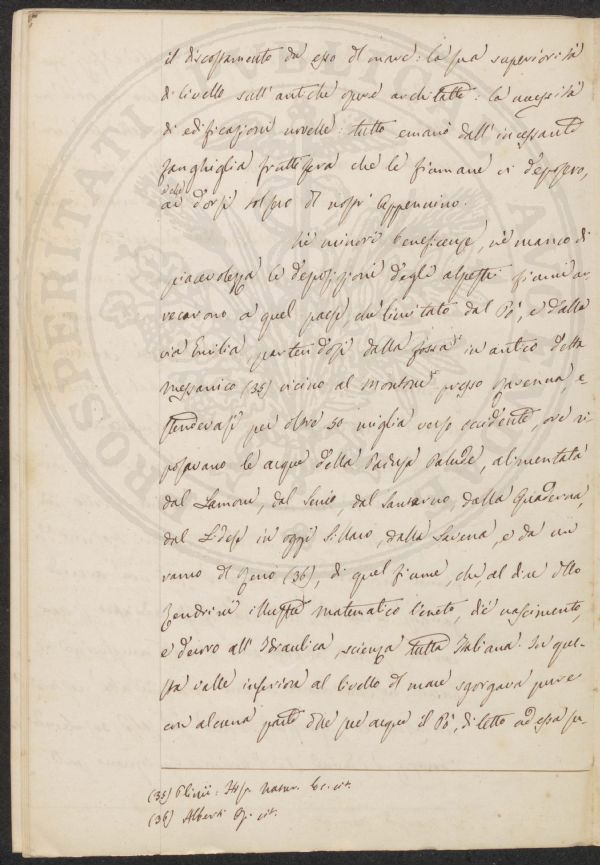 il discostamento da esso del mare: la sua superiorità
di livello sull'antiche opere architette: la necessità
di edificazioni novelle: tutto emanò dall'incessante
fanghiglia fruttifera che le fiumane vi deposero,
e dorsi del nostri Appennino.
Nè minori beneficenze, nè manco di
piacevolezza le deposizioni degli alpestri fiumi ar-
recarono a quel paese che limitato dal Pò, e dalla
via Emilia partendosi dalla fossa in antico detta
Messanico (35) vicino al Montone presso Ravenna, e
stendevasi per oltre 50 miglia verso occidente, ove ri-
posavano le acque della Padusa Palude, alimentata
dal Lamone, dal Senio, dal Santerno, dalla Quaderna,
dal Sidesi in oggi Sillaro, dalla Savena, e da un
ramo del Reno (36), di quel fiume, che, al dire dello
Zendrini illustre matematico Veneto, diè nascimento,
e decoro all'Idraulica, scienza tutta Italiana. In que-
sta valle inferiore al livello del mare sgorgava pure
con alcuna parte delle sue acque il Pò, di letto ad essa su-
(35) Plinii: Hist. Natur. loc. cit.
(36) Alberti Op. cit.